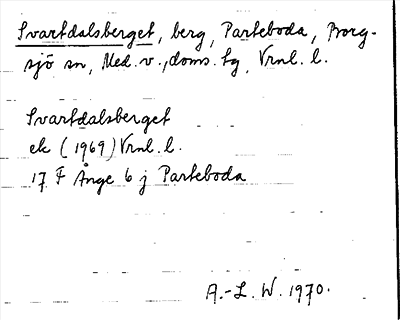 Svartdalsberget, berg, Parteboda, Borg-
sjö sn, Med. v., doms. tg, Vrnl. l.
Svartdalsberget
ek (1969) Vrnl. l.
17 F Ånge 6 j Parteboda
A.-L. W. 1970.